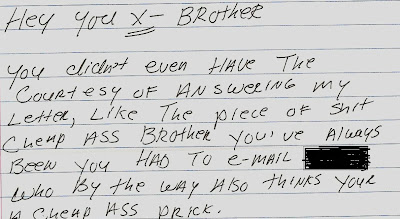 Hey you X- Brother
you didn't even HAVE THE
COURTESY OF ANSWERING my
Letter, Like The piece of shit
Cheap ASS Brother you've Always
Been you HAD TO e-mail
who By the way Also thinks your
A Cheap ASS prick.